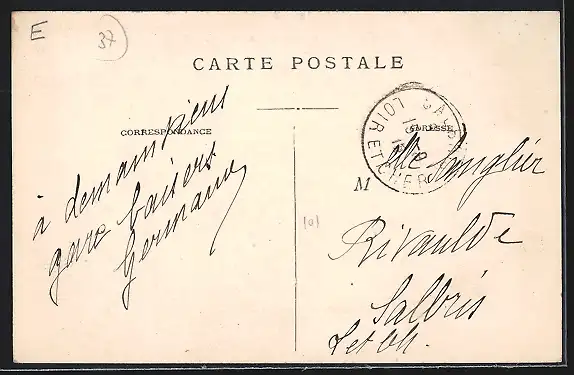 E
37
CARTE POSTALE
CORRESPONDANCE
ADRESSE
LOIR ET CHER
à demain
gare baisers
Germaine
M elle Sanglier
Rivaulde
Salbris
L et Ch.
(a)